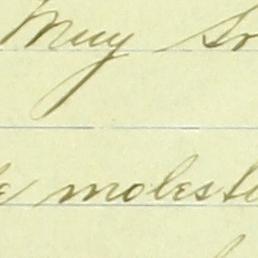 Muy Sr
molest